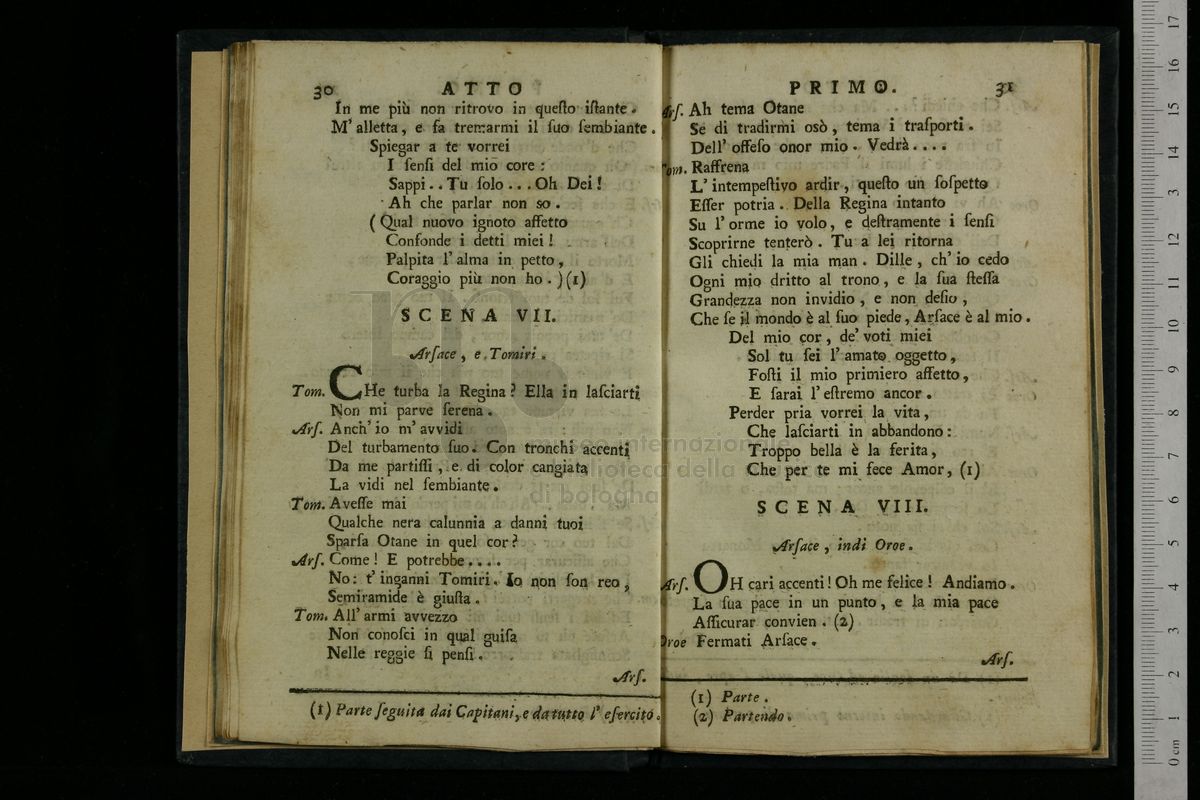 30 ATTO
In me più non ritrovo in queſto iſtante.
M'alletta, e fa tremarmi il ſuo ſembiante.
Spiegar a te vorrei
I ſenſi del mio core:
Sappi.. Tu ſolo... Oh Dei!
Ah che parlar non so.
(Qual nuovo ignoto affetto
Confonde i detti miei!
Palpita l'alma in petto,
Coraggio più non ho.)(1)
SCENA VII.
Arſace, e Tomiri.
Tom. CHe turba la Regina? Ella in laſciarti
Non mi parve ſerena.
Arſ. Anch'io m'avvidi
Del turbamento ſuo. Con tronchi accenti
Da me partiſſi, e di color cangiata
La vidi nel ſembiante.
Tom. Aveſſe mai
Qualche nera calunnia a danni tuoi
Sparſa Otane in quel cor?
Arſ. Come! E potrebbe....
No: t'inganni Tomiri. Io non ſon reo,
Semiramide è giuſta.
Tom. All'armi avvezzo
Non conoſci in qual guiſa
Nelle reggie ſi penſi.
Arſ.
(1) Parte ſeguita dai Capitani, e da tutto l'eſercito.
PRIMO. 31
Arſ. Ah tema Otane
Se di tradirmi osò, tema i traſporti.
Dell'offeſo onor mio. Vedrà....
Tom. Raffrena
L'intempeſtivo ardir, queſto un ſoſpetto
Eſſer potria. Della Regina intanto
Su l'orme io volo, e deſtramente i ſenſi
Scoprirne tenterò. Tu a lei ritorna
Gli chiedi la mia man. Dille, ch'io cedo
Ogni mio dritto al trono, e la ſua ſteſſa
Grandezza non invidio, e non deſio,
Che ſe il mondo è al ſuo piede, Arſace è al mio.
Del mio cor, de' voti miei
Sol tu ſei l'amato oggetto,
Foſti il mio primiero affetto,
E ſarai l'eſtremo ancor.
Perder pria vorrei la vita,
Che laſciarti in abbandono:
Troppo bella è la ferita,
Che per te mi fece Amor, (1)
SCENA VIII.
Arſace, indi Oroe.
Arſ. OH cari accenti! Oh me felice! Andiamo.
La ſua pace in un punto, e la mia pace
Aſſicurar convien. (2)
Oroe Fermati Arſace.
Arſ.
(1) Parte.
(2) Partendo.
m
museo internazionale
e biblioteca della
di bologna
0 cm 1 2 3 4 5 6 7 8 9 10 11 12 13 14 15 16 17